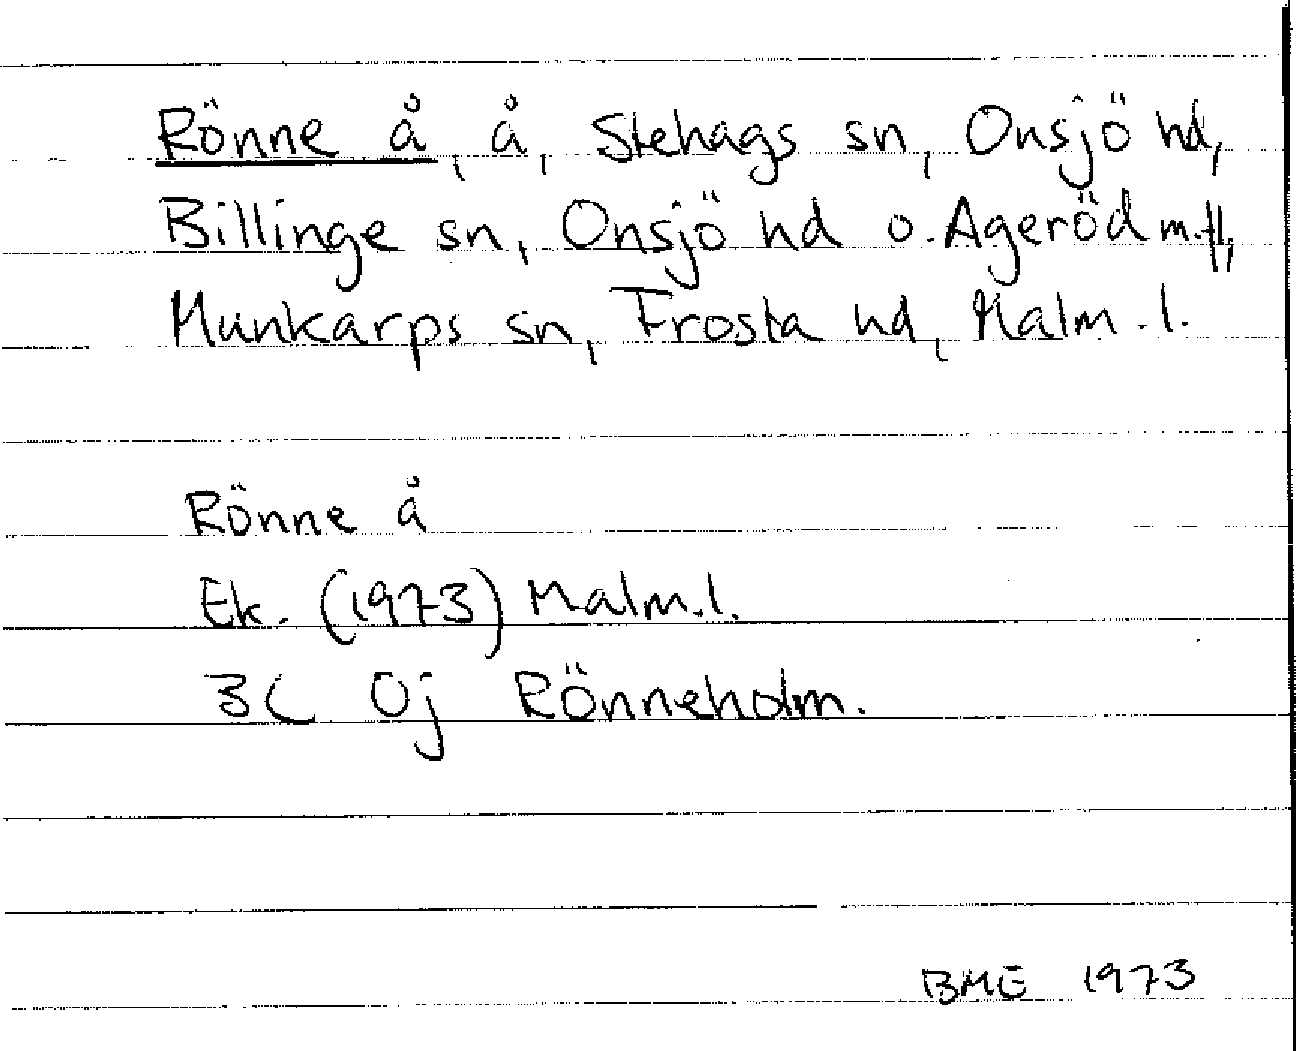 Rönne å, å, Stehags sn, Onsjö hd,
Billinge sn, Onsjö hd o. Ageröd m.fl,
Munkarps sn, Frosta hd, Malm.l.
Rönne å
Ek. (1973) Malm.l.
3C 0j Rönneholm.
BME 1973